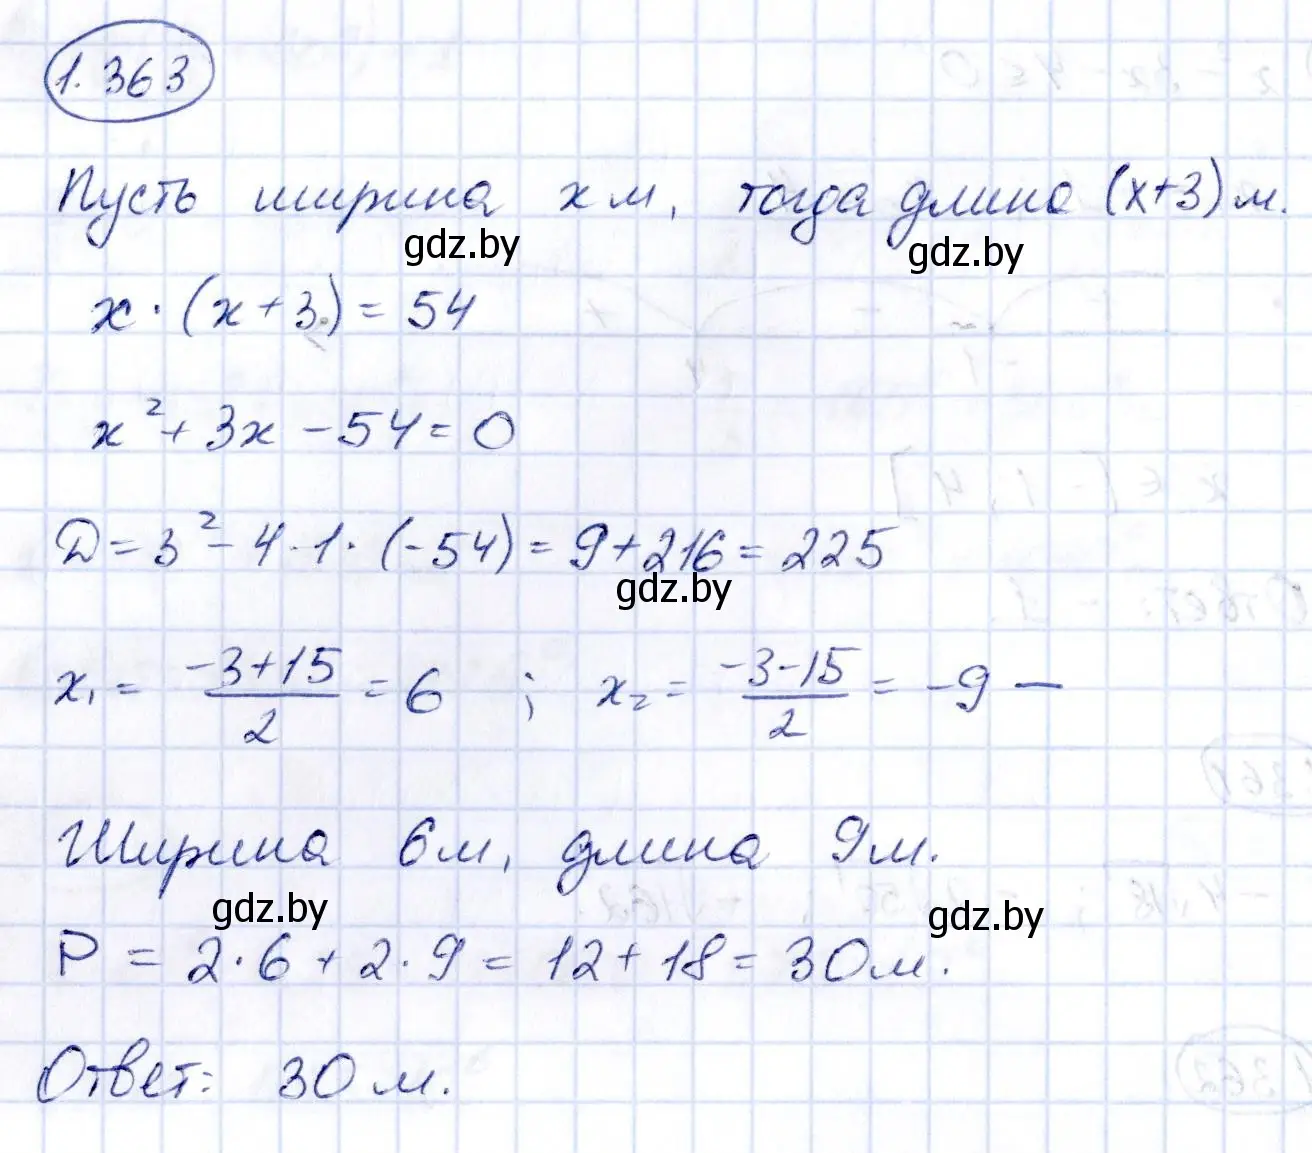 1.363
Пусть ширина x м, тогда длина (x+3) м.
gdz.by gdz.by
x · (x+3) = 54
x² + 3x - 54 = 0
D = 3² - 4·1·(-54) = 9 + 216 = 225
gdz.by
x₁ = (-3+15)/2 = 6 ; x₂ = (-3-15)/2 = -9 —
Ширина 6 м, длина 9 м.
gdz.by gdz.by
P = 2·6 + 2·9 = 12 + 18 = 30 м.
Ответ: 30 м.